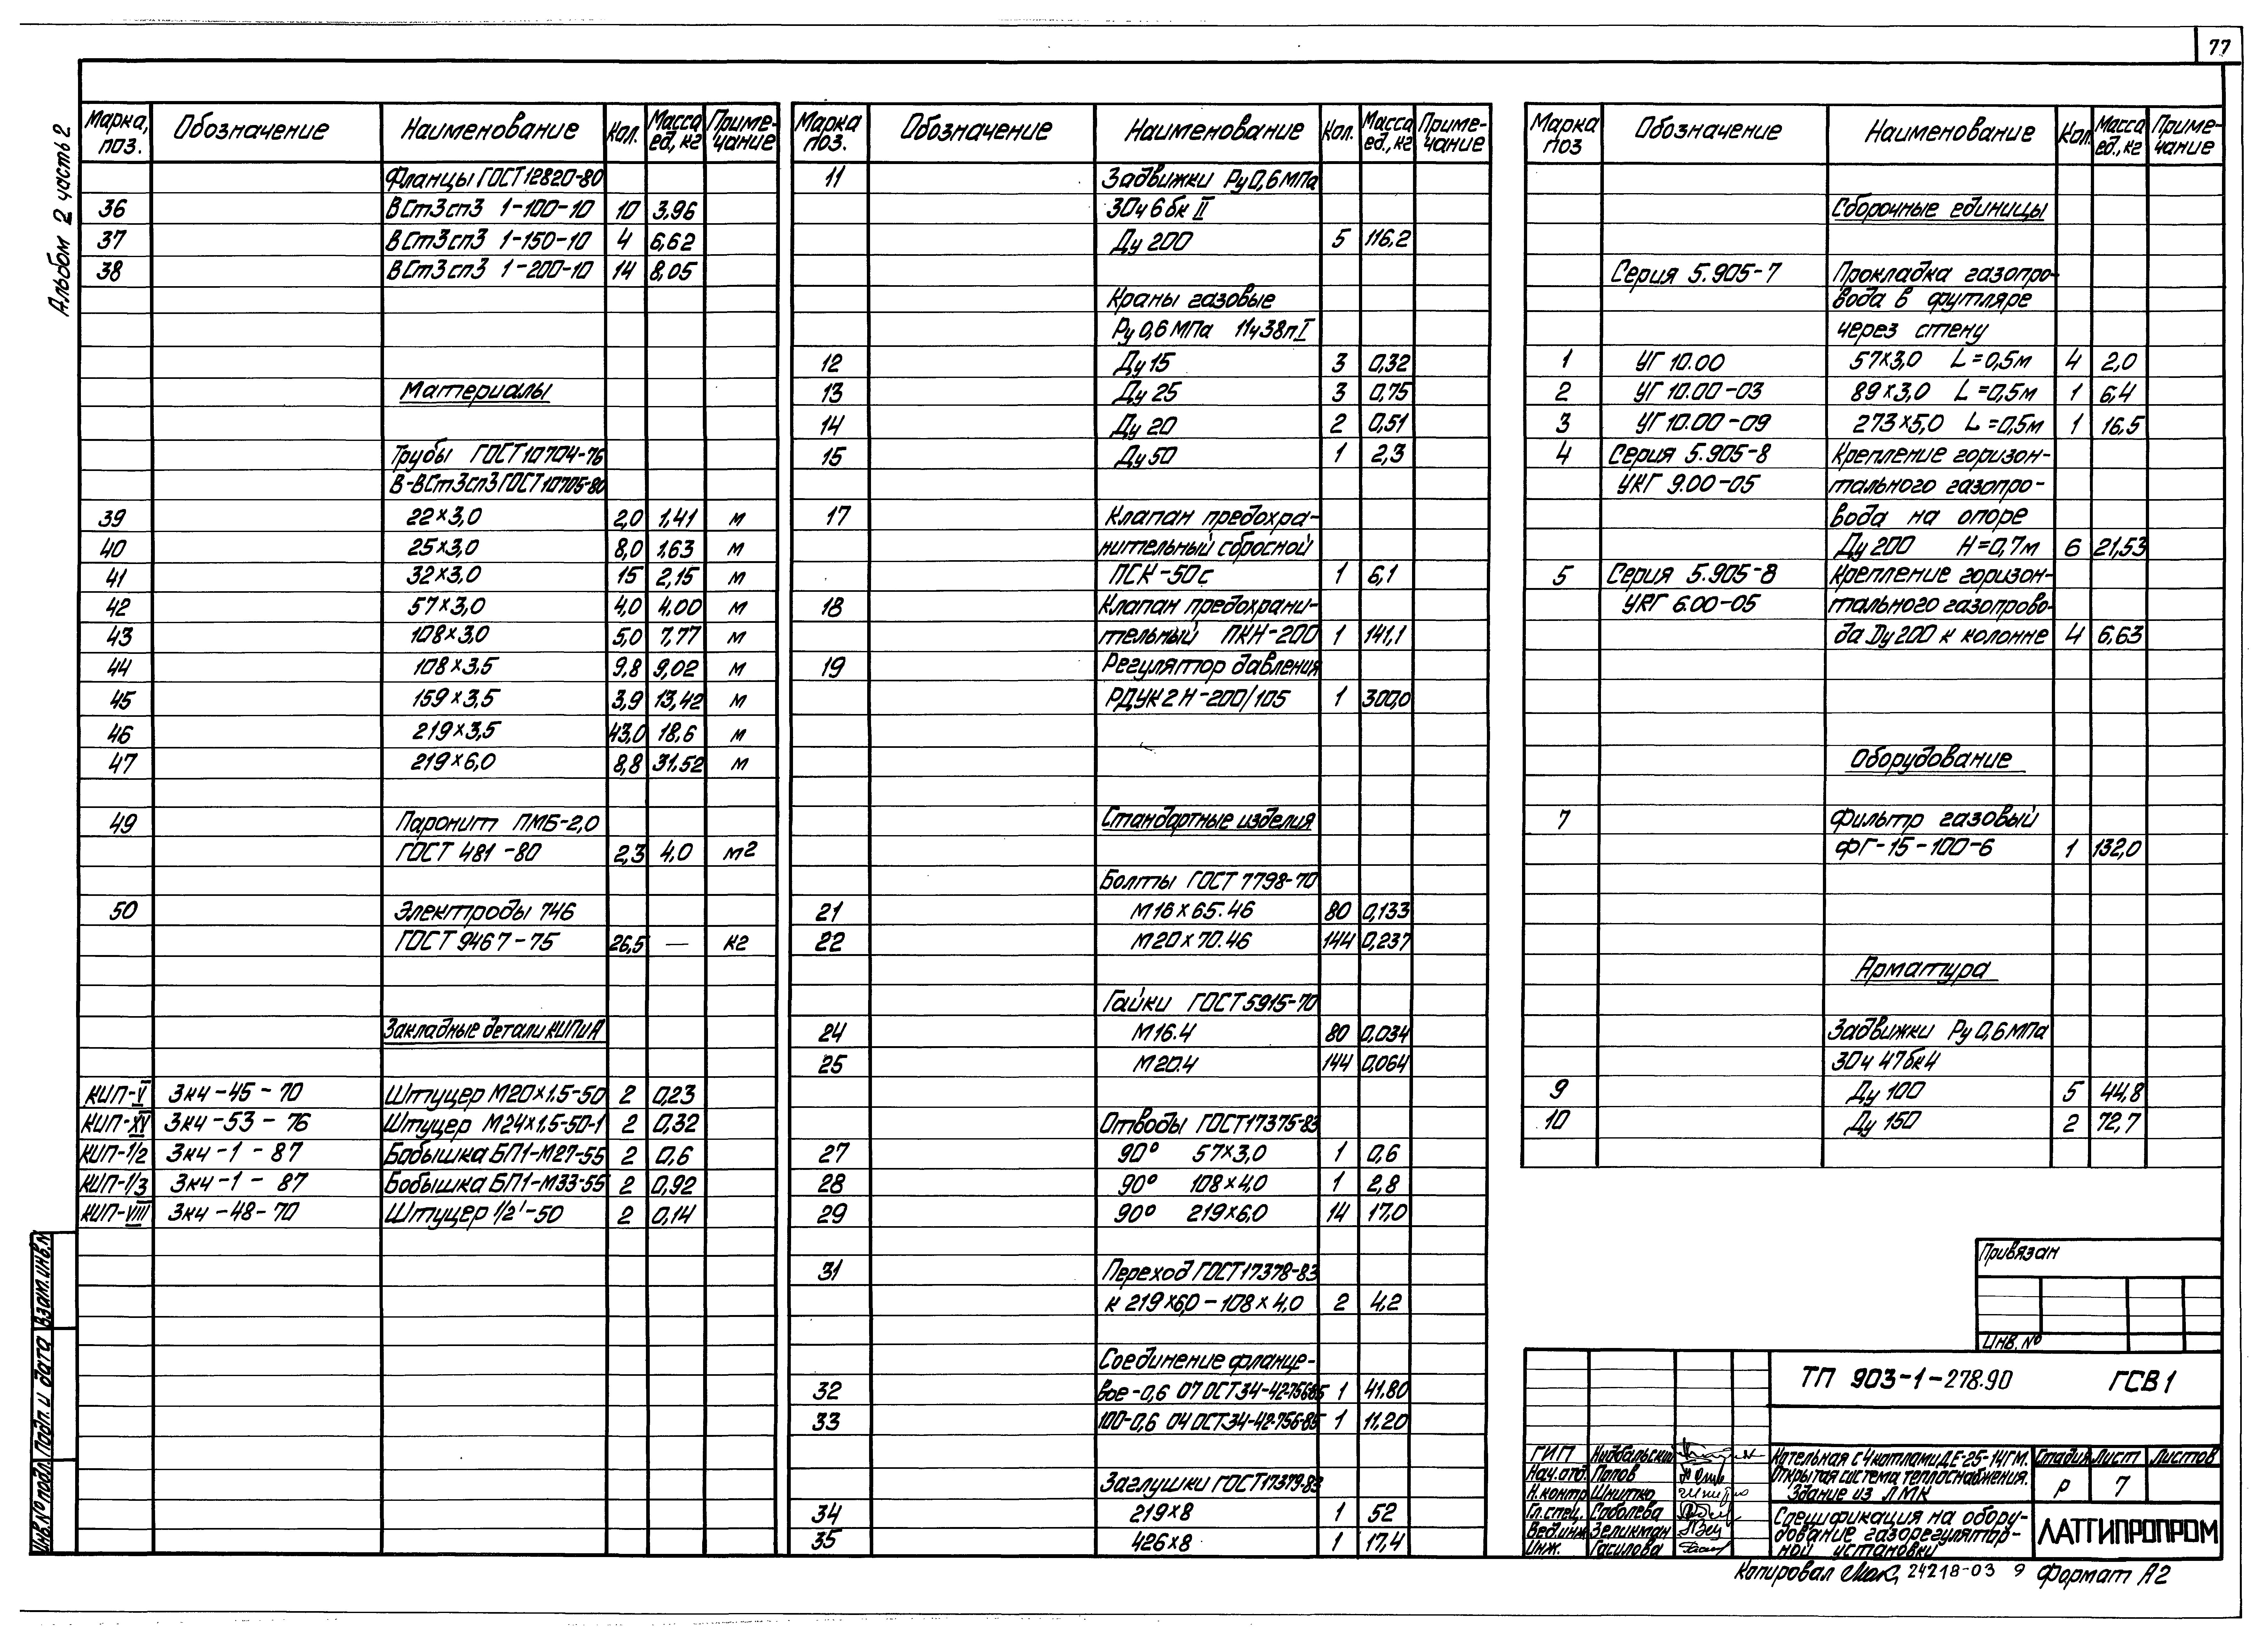 77
Альбом 2 часть 2
Марка, поз. Обозначение Наименование Кол. Масса ед, кг Приме-чание
Фланцы ГОСТ 12820-80
36 ВСт3сп3 1-100-10 10 3,96
37 ВСт3сп3 1-150-10 4 6,62
38 ВСт3сп3 1-200-10 14 8,05
Материалы
Трубы ГОСТ 10704-76
В-ВСт3сп3 ГОСТ 10705-80
39 22×3,0 2,0 1,41 м
40 25×3,0 8,0 1,63 м
41 32×3,0 15 2,15 м
42 57×3,0 4,0 4,00 м
43 108×3,0 5,0 7,77 м
44 108×3,5 9,8 9,02 м
45 159×3,5 3,9 13,42 м
46 219×3,5 43,0 18,6 м
47 219×6,0 8,8 31,52 м
49 Паронит ПМБ-2,0
ГОСТ 481-80 2,3 4,0 м2
50 Электроды Э46
ГОСТ 9467-75 26,5 — кг
Закладные детали КИПиА
КИП-V Зкч-45-70 Штуцер М20×1.5-50 2 0,23
КИП-XV Зкч-53-76 Штуцер М24×1,5-50-1 2 0,32
КИП-1/2 Зкч-1-87 Бобышка БП1-М27-55 2 0,6
КИП-1/3 Зкч-1-87 Бобышка БП1-М33-55 2 0,92
КИП-VIII Зкч-48-70 Штуцер 1/2'-50 2 0,14
Марка поз. Обозначение Наименование Кол. Масса ед., кг Приме-чание
11 Задвижки Ру 0,6 МПа
30ч6бк II
Ду 200 5 116,2
Краны газовые
Ру 0,6 МПа 11ч38п I
12 Ду 15 3 0,32
13 Ду 25 3 0,75
14 Ду 20 2 0,51
15 Ду 50 1 2,3
17 Клапан предохра-
нительный сбросной
ПСК-50с 1 6,1
18 Клапан предохрани-
тельный ПКН-200 1 141,1
19 Регулятор давления
РДУК2Н-200/105 1 300,0
Стандартные изделия
Болты ГОСТ 7798-70
21 М16×65.46 80 0,133
22 М20×70.46 144 0,237
Гайки ГОСТ 5915-70
24 М16.4 80 0,034
25 М20.4 144 0,064
Отводы ГОСТ 17375-83
27 90° 57×3,0 1 0,6
28 90° 108×4,0 1 2,8
29 90° 219×6,0 14 17,0
31 Переход ГОСТ 17378-83
к 219×6,0-108×4,0 2 4,2
Соединение фланце-
32 вое-0,6 07 ОСТ 34-42-756-85 1 41.80
33 100-0,6 04 ОСТ 34-42-756-85 1 11,20
Заглушки ГОСТ 17379-83
34 219×8 1 52
35 426×8 1 17,4
Марка поз Обозначение Наименование Кол. Масса ед., кг Приме-чание
Сборочные единицы
Серия 5.905-7 Прокладка газопро-
вода в футляре
через стену
1 УГ 10.00 57×3,0 L=0,5м 4 2,0
2 УГ 10.00-03 89×3,0 L=0,5м 1 6,4
3 УГ 10.00-09 273×5,0 L=0,5м 1 16,5
4 Серия 5.905-8 Крепление горизон-
УКГ 9.00-05 тального газопро-
вода на опоре
Ду 200 Н=0,7м 6 21,53
5 Серия 5.905-8 Крепление горизон-
УКГ 6.00-05 тального газопрово-
да Ду 200 к колонне 4 6,63
Оборудование
7 Фильтр газовый
ФГ-15-100-6 1 132,0
Арматура
Задвижки Ру 0,6 МПа
30ч47бк4
9 Ду 100 5 44,8
10 Ду 150 2 72,7
Привязан
Инв. №
ТП 903-1-278.90 ГСВ1
ГИП Нидбальский
Нач. отд. Попов
Н.контр Шнитко
Гл. спец. Соболева
Вед.инж Зеликман
Инж. Гасилова
Котельная с 4 котлами ДЕ-25-14ГМ.
Открытая система теплоснабжения.
Здание из ЛМК
Стадия Лист Листов
Р 7
Спецификация на обору-
дование газорегулятор-
ной установки
ЛАТГИПРОПРОМ
Копировал 24218-03 9 Формат А2
Инв. № подл. Подп. и дата Взам. инв. №